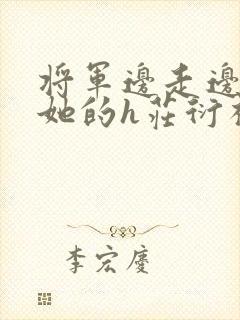 將軍邊走邊
她的h莊衍
李宏慶